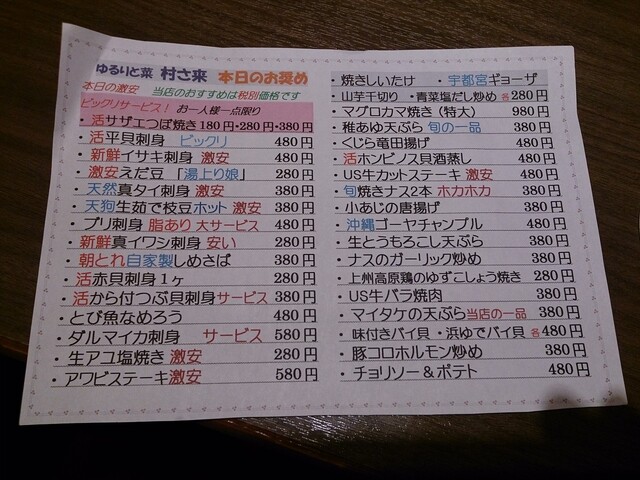 ゆるりと菜 村さ来 本日のお奨め
本日の激安 当店のおすすめは税別価格です
ビックリサービス! お一人様一点限り
・活サザエつぼ焼き180円・280円・380円
・活平貝刺身 ビックリ 480円
・新鮮イサキ刺身 激安 480円
・激安えだ豆「湯上り娘」 280円
・天然真タイ刺身 激安 380円
・天狗生茹で枝豆ホット 激安 380円
・ブリ刺身 脂あり 大サービス 480円
・新鮮真イワシ刺身 安い 280円
・朝とれ自家製しめさば 380円
・活赤貝刺身1ヶ 280円
・活から付つぶ貝刺身サービス 380円
・とび魚なめろう 480円
・ダルマイカ刺身 サービス 580円
・生アユ塩焼き 激安 280円
・アワビステーキ激安 580円
・焼きしいたけ ・宇都宮ギョーザ
・山芋千切り ・青菜塩だし炒め 各280円
・マグロカマ焼き(特大) 980円
・稚あゆ天ぷら 旬の一品 380円
・くじら竜田揚げ 480円
・活ホンビノス貝酒蒸し 480円
・US牛カットステーキ 激安 480円
・旬焼きナス2本 ホカホカ 380円
・小あじの唐揚げ 380円
・沖縄ゴーヤチャンプル 480円
・生とうもろこし天ぷら 380円
・ナスのガーリック炒め 380円
・上州高原鶏のゆずこしょう焼き 280円
・US牛バラ焼肉 380円
・マイタケの天ぷら当店の一品 380円
・味付きバイ貝 ・浜ゆでバイ貝 各480円
・豚コロホルモン炒め 380円
・チョリソー&ポテト 480円